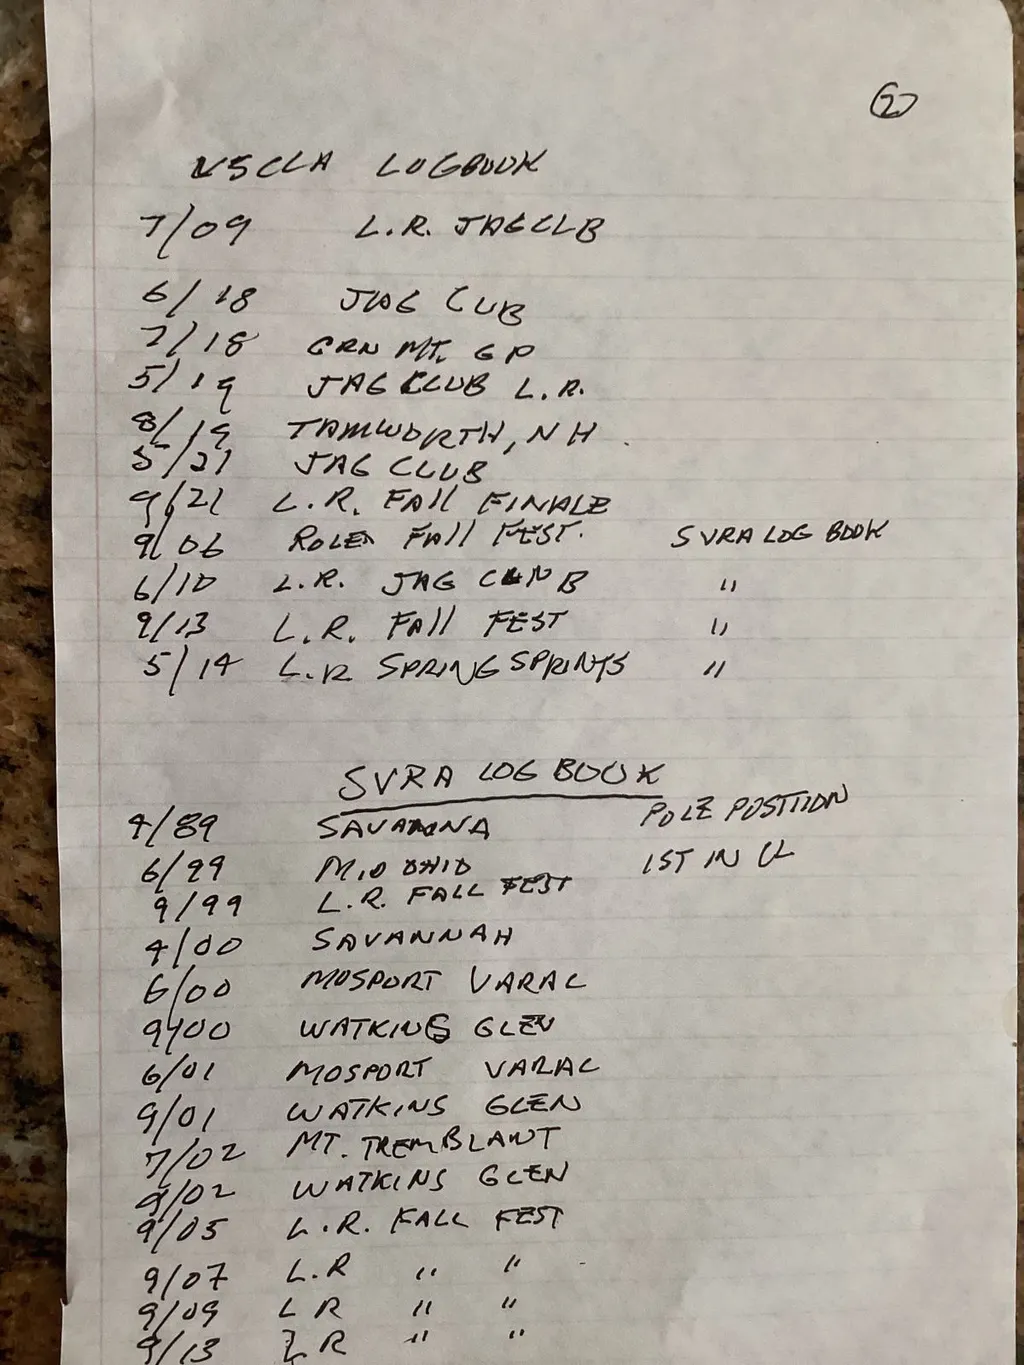 2
VSCCA LOGBOOK
7/09 L.R. JAG CLB
6/18 JAG CUB
7/18 GRN MT. GP
5/19 JAG CLUB L.R.
8/19 TAMWORTH, NH
5/21 JAG CLUB
9/21 L.R. FAll FINALE
9/06 ROLEX FAll FEST. SVRA LOG BOOK
6/10 L.R. JAG CLUB "
9/13 L.R. FAll FEST "
5/14 L.R SPRING SPRINTS "
SVRA LOG BOOK
4/89 SAVANNA POLE POSITION
6/99 MID OHIO 1ST IN CL
9/99 L.R. FALL FEST
4/00 SAVANNAH
6/00 MOSPORT VARAC
9/00 WATKINS GLEN
6/01 MOSPORT VARAC
9/01 WATKINS GLEN
7/02 MT. TREMBLANT
9/02 WATKINS GLEN
9/05 L.R. FALL FEST
9/07 L.R " "
9/09 LR " "
9/13 LR " "